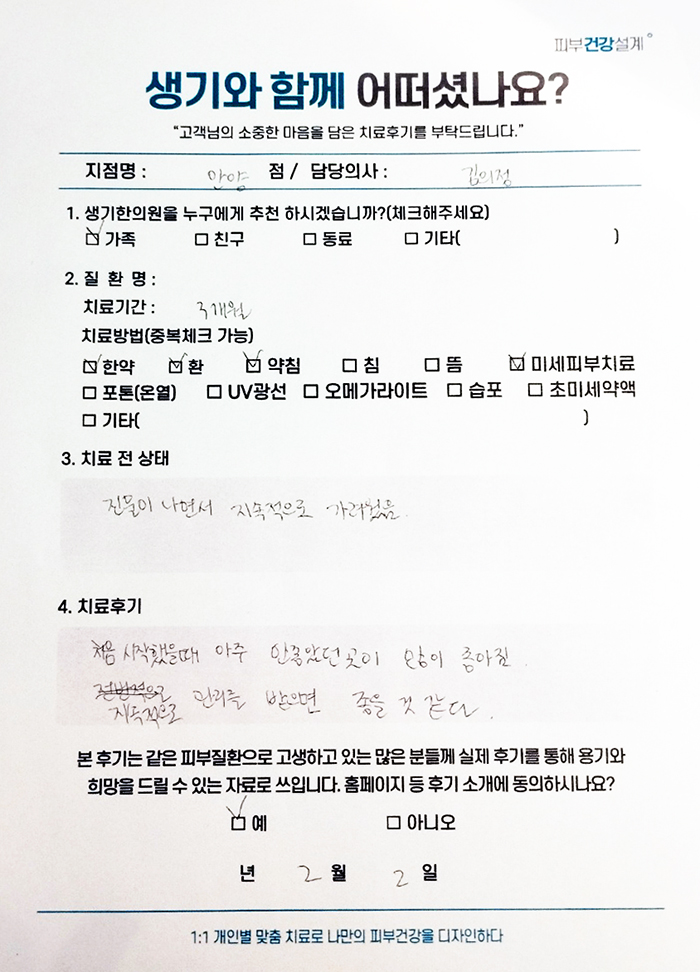 피부건강설계
생기와 함께 어떠셨나요?
"고객님의 소중한 마음을 담은 치료후기를 부탁드립니다."
지점명 : 안양 점 / 담당의사 : 김의정
1. 생기한의원을 누구에게 추천 하시겠습니까?(체크해주세요)
☑ 가족 □ 친구 □ 동료 □ 기타( )
2. 질 환 명 :
치료기간 : 3개월
치료방법(중복체크 가능)
☑ 한약 ☑ 환 ☑ 약침 □ 침 □ 뜸 ☑ 미세피부치료
□ 포톤(온열) □ UV광선 □ 오메가라이트 □ 습포 □ 초미세약액
□ 기타( )
3. 치료 전 상태
진물이 나면서 지속적으로 가려웠음.
4. 치료후기
처음 시작했을때 아주 안좋았던 곳이 많이 좋아짐.
전반적으로
지속적으로 관리를 받으면 좋을 것 같다.
본 후기는 같은 피부질환으로 고생하고 있는 많은 분들께 실제 후기를 통해 용기와
희망을 드릴 수 있는 자료로 쓰입니다. 홈페이지 등 후기 소개에 동의하시나요?
☑ 예 □ 아니오
년 2 월 2 일
1:1 개인별 맞춤 치료로 나만의 피부건강을 디자인하다